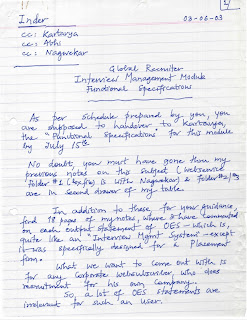 4
Inder
03-06-03
cc: Kartarya
cc: Abhi
cc: Nagwekar
Global Recruiter
Interview Management Module
Functional Specifications
As per schedule prepared by you, you
are supposed to handover to Kartarya,
the "Functional Specifications" for this module
by July 15th
No doubt, you must have gone thru my
previous notes on this subject (Webservice
folder #1 is with Nagwekar & folder #
are in second drawer of my table
In addition to these for your guidance,
find 18 pages of my notes, where I have commented
on each output statement of OES - which is,
quite like an "Interview Mgmt System" except
it was specifically designed for a Placement
firm.
What we want to come out with is
for any Corporate Websubscriber, who does
recruitment for his own company.
So, a lot of OES statements are
irrelevant for such an User.